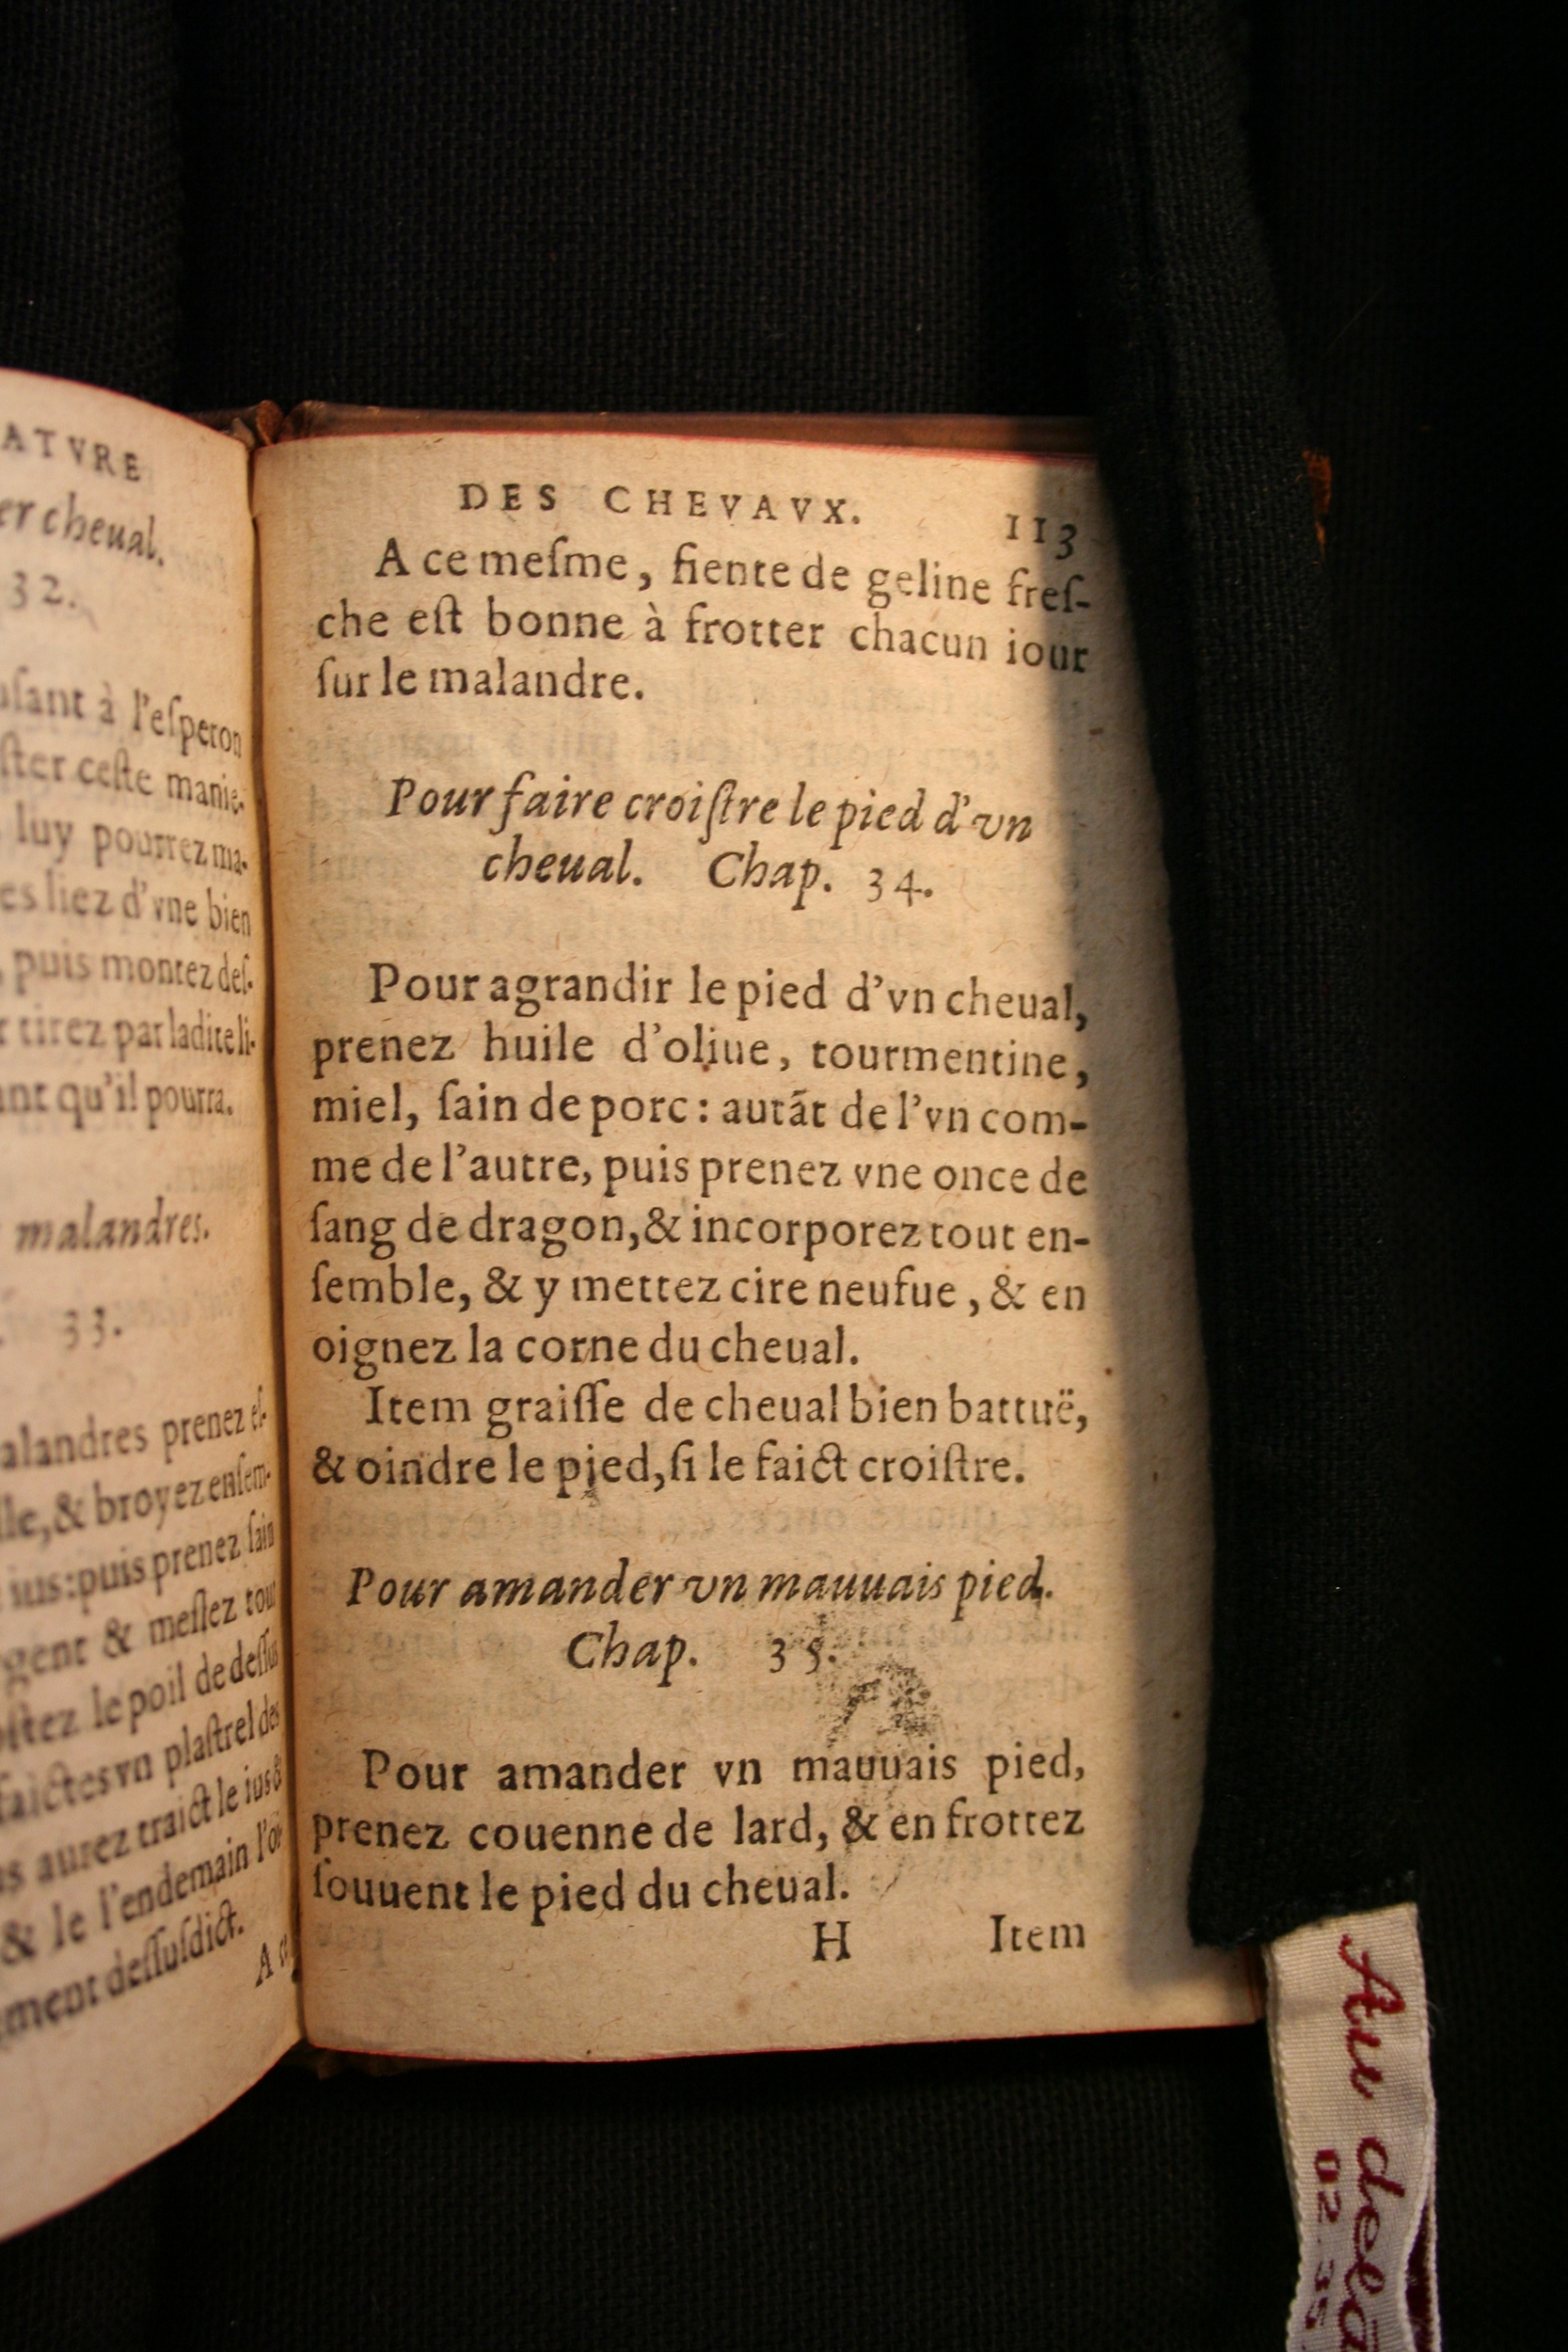 ATVRE
er cheual.
32.
à l'esperon
ſter ceſte manie-
luy pourrez ma-
es liez d'vne bien
, puis montez deſ-
tirez par ladite li-
ant qu'il pourra.
malandres.
33.
alandres prenez eſ-
lle, & broyez enſem-
ius: puis prenez ſain
gent & meſlez tout
oſtez le poil de deſſus
faictes vn plaſtrel des
s aurez traict le ius &
& le l'endemain l'o
ement deſſuſdict.
A ce
DES CHEVAVX. 113
A ce meſme, fiente de geline freſ-
che eſt bonne à frotter chacun iour
ſur le malandre.
Pour faire croiſtre le pied d'vn
cheual. Chap. 34.
Pour agrandir le pied d'vn cheual,
prenez huile d'oliue, tourmentine,
miel, ſain de porc: autãt de l'vn com-
me de l'autre, puis prenez vne once de
ſang de dragon, & incorporez tout en-
ſemble, & y mettez cire neufue, & en
oignez la corne du cheual.
Item graiſſe de cheual bien battuë,
& oindre le pied, ſi le faict croiſtre.
Pour amander vn mauuais pied.
Chap. 35.
Pour amander vn mauuais pied,
prenez couenne de lard, & en frottez
ſouuent le pied du cheual.
H Item
Au delà
02 35